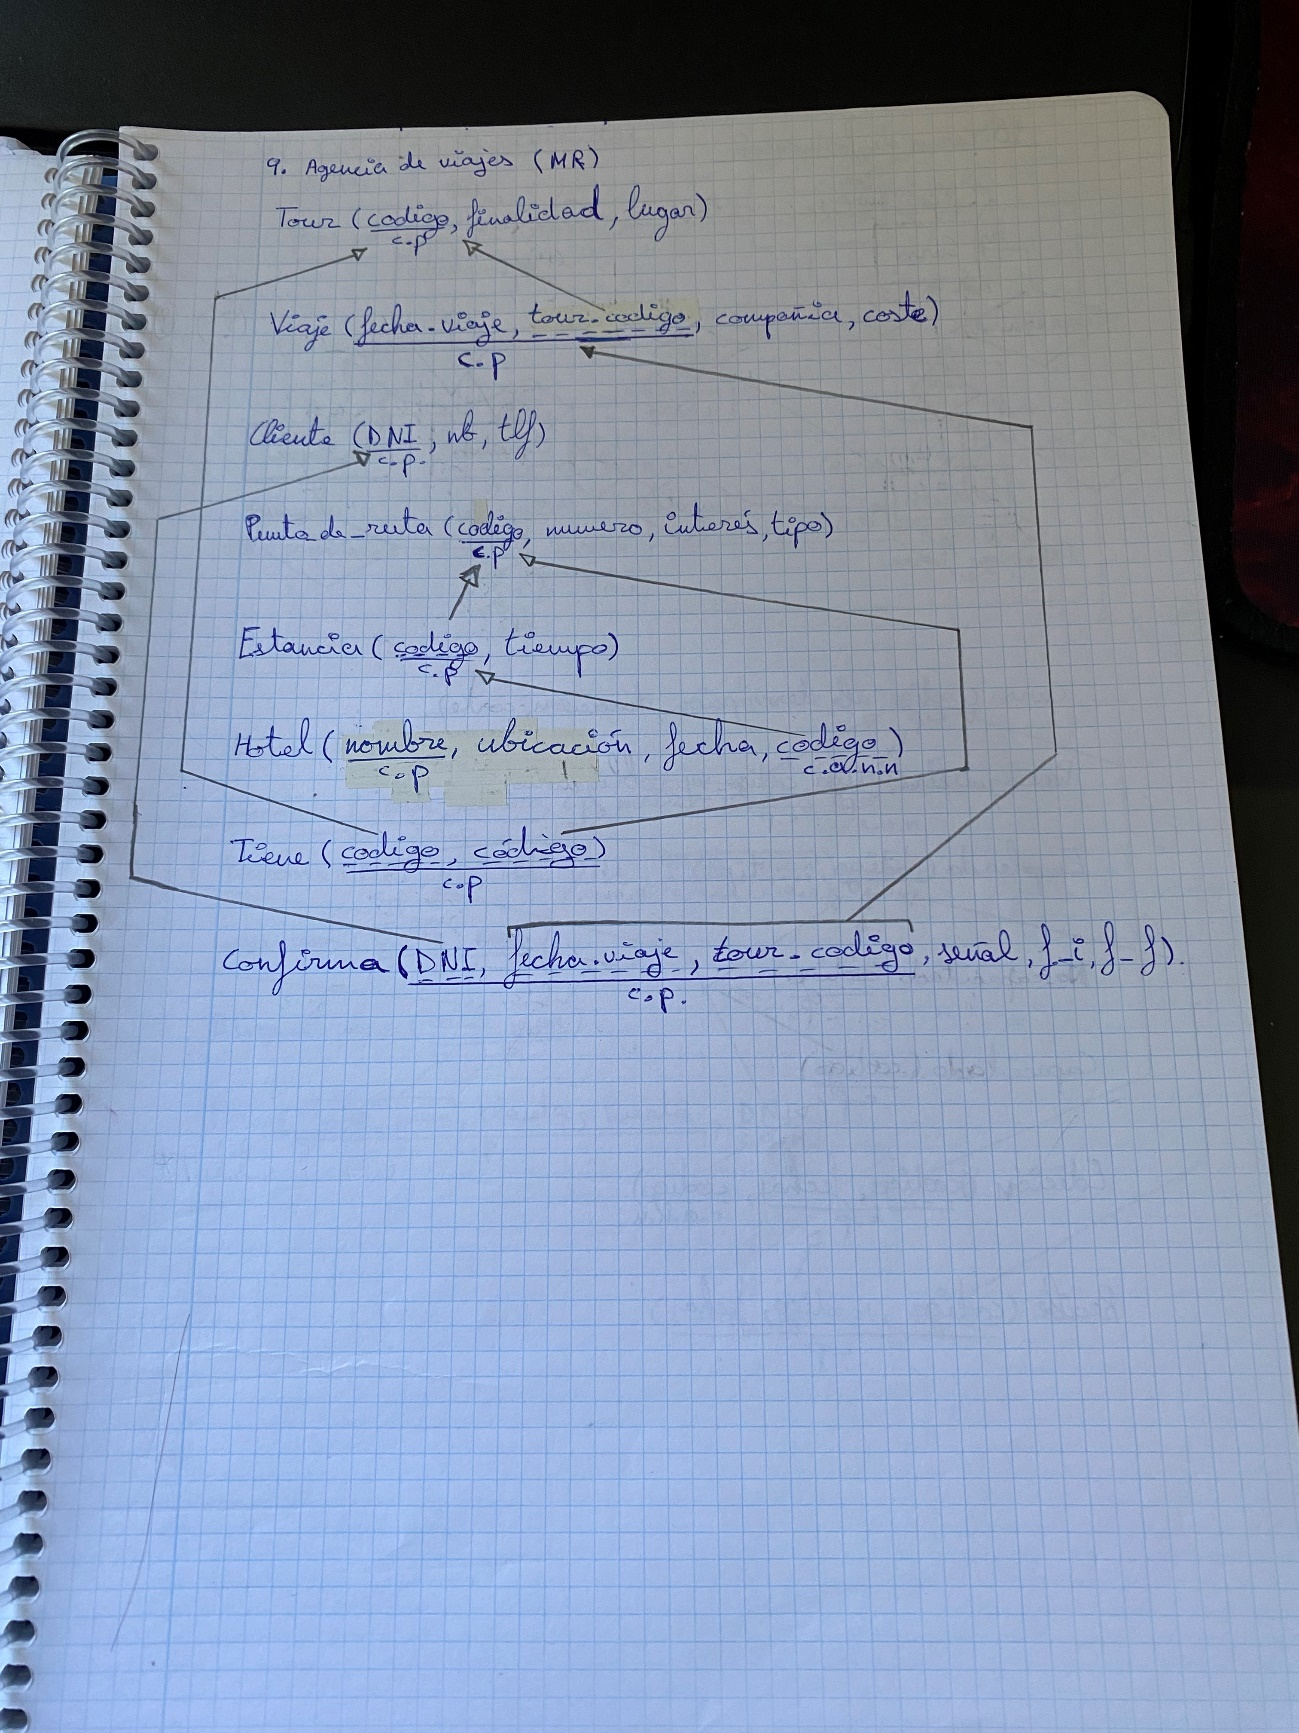 9. Agencia de viajes (MR)
Tour (codigo, finalidad, lugar)
c.p
Viaje (fecha-viaje, tour-codigo, compañia, coste)
c.p
Cliente (DNI, nb, tlf)
c.p.
Punto_de_ruta (codigo, numero, interés, tipo)
c.p
Estancia (codigo, tiempo)
c.p
Hotel (nombre, ubicación, fecha, codigo)
c.p c.a.n.n
Tiene (codigo, código)
c.p
Confirma (DNI, fecha-viaje, tour-codigo, señal, f_i, f_f).
c.p.